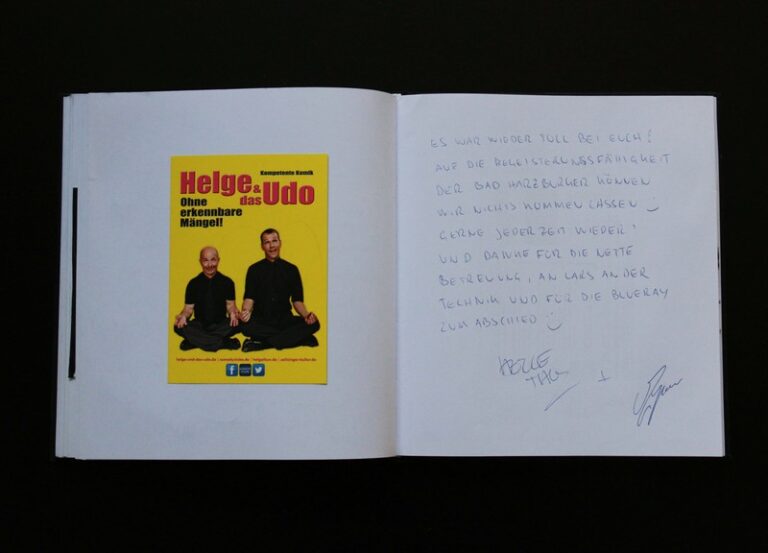 Kompetente Komik
Helge &
das Udo
Ohne
erkennbare
Mängel!
f
ES WAR WIEDER TOLL BEI EUCH!
AUF DIE BEGEISTERUNGSFÄHIGKEIT
DER BAD HARZBURGER KÖNNEN
WIR NICHTS KOMMEN LASSEN
GERNE JEDERZEIT WIEDER!
UND DANKE FÜR DIE NETTE
BETREUUNG, AN LARS AN DER
TECHNIK UND FÜR DIE BLUERAY
ZUM ABSCHIED
+